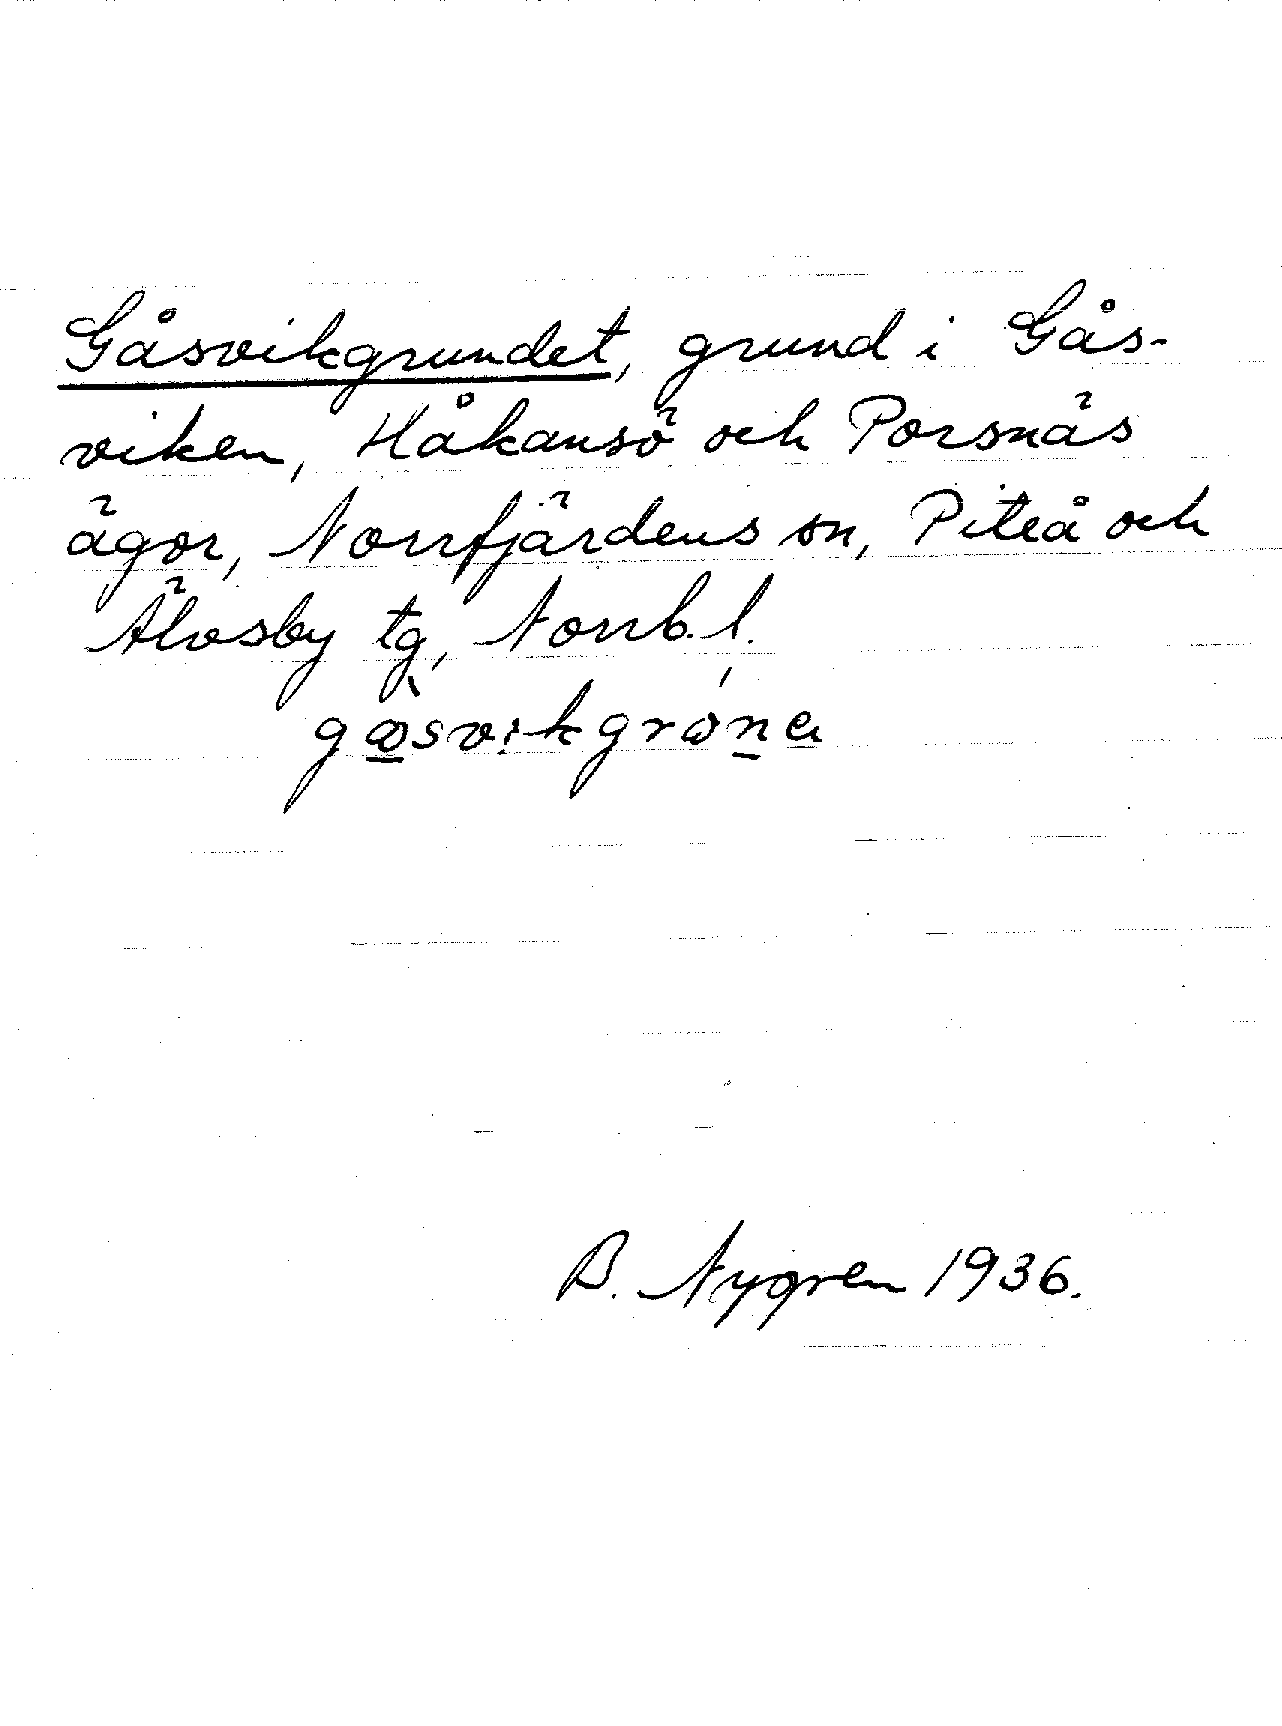 Gåsvikgrundet, grund i Gås-
viken, Håkansö och Porsnäs
ägor, Norrfjärdens sn, Piteå och
Älvsby tg, Norrb. l.
B. Nygren 1936.